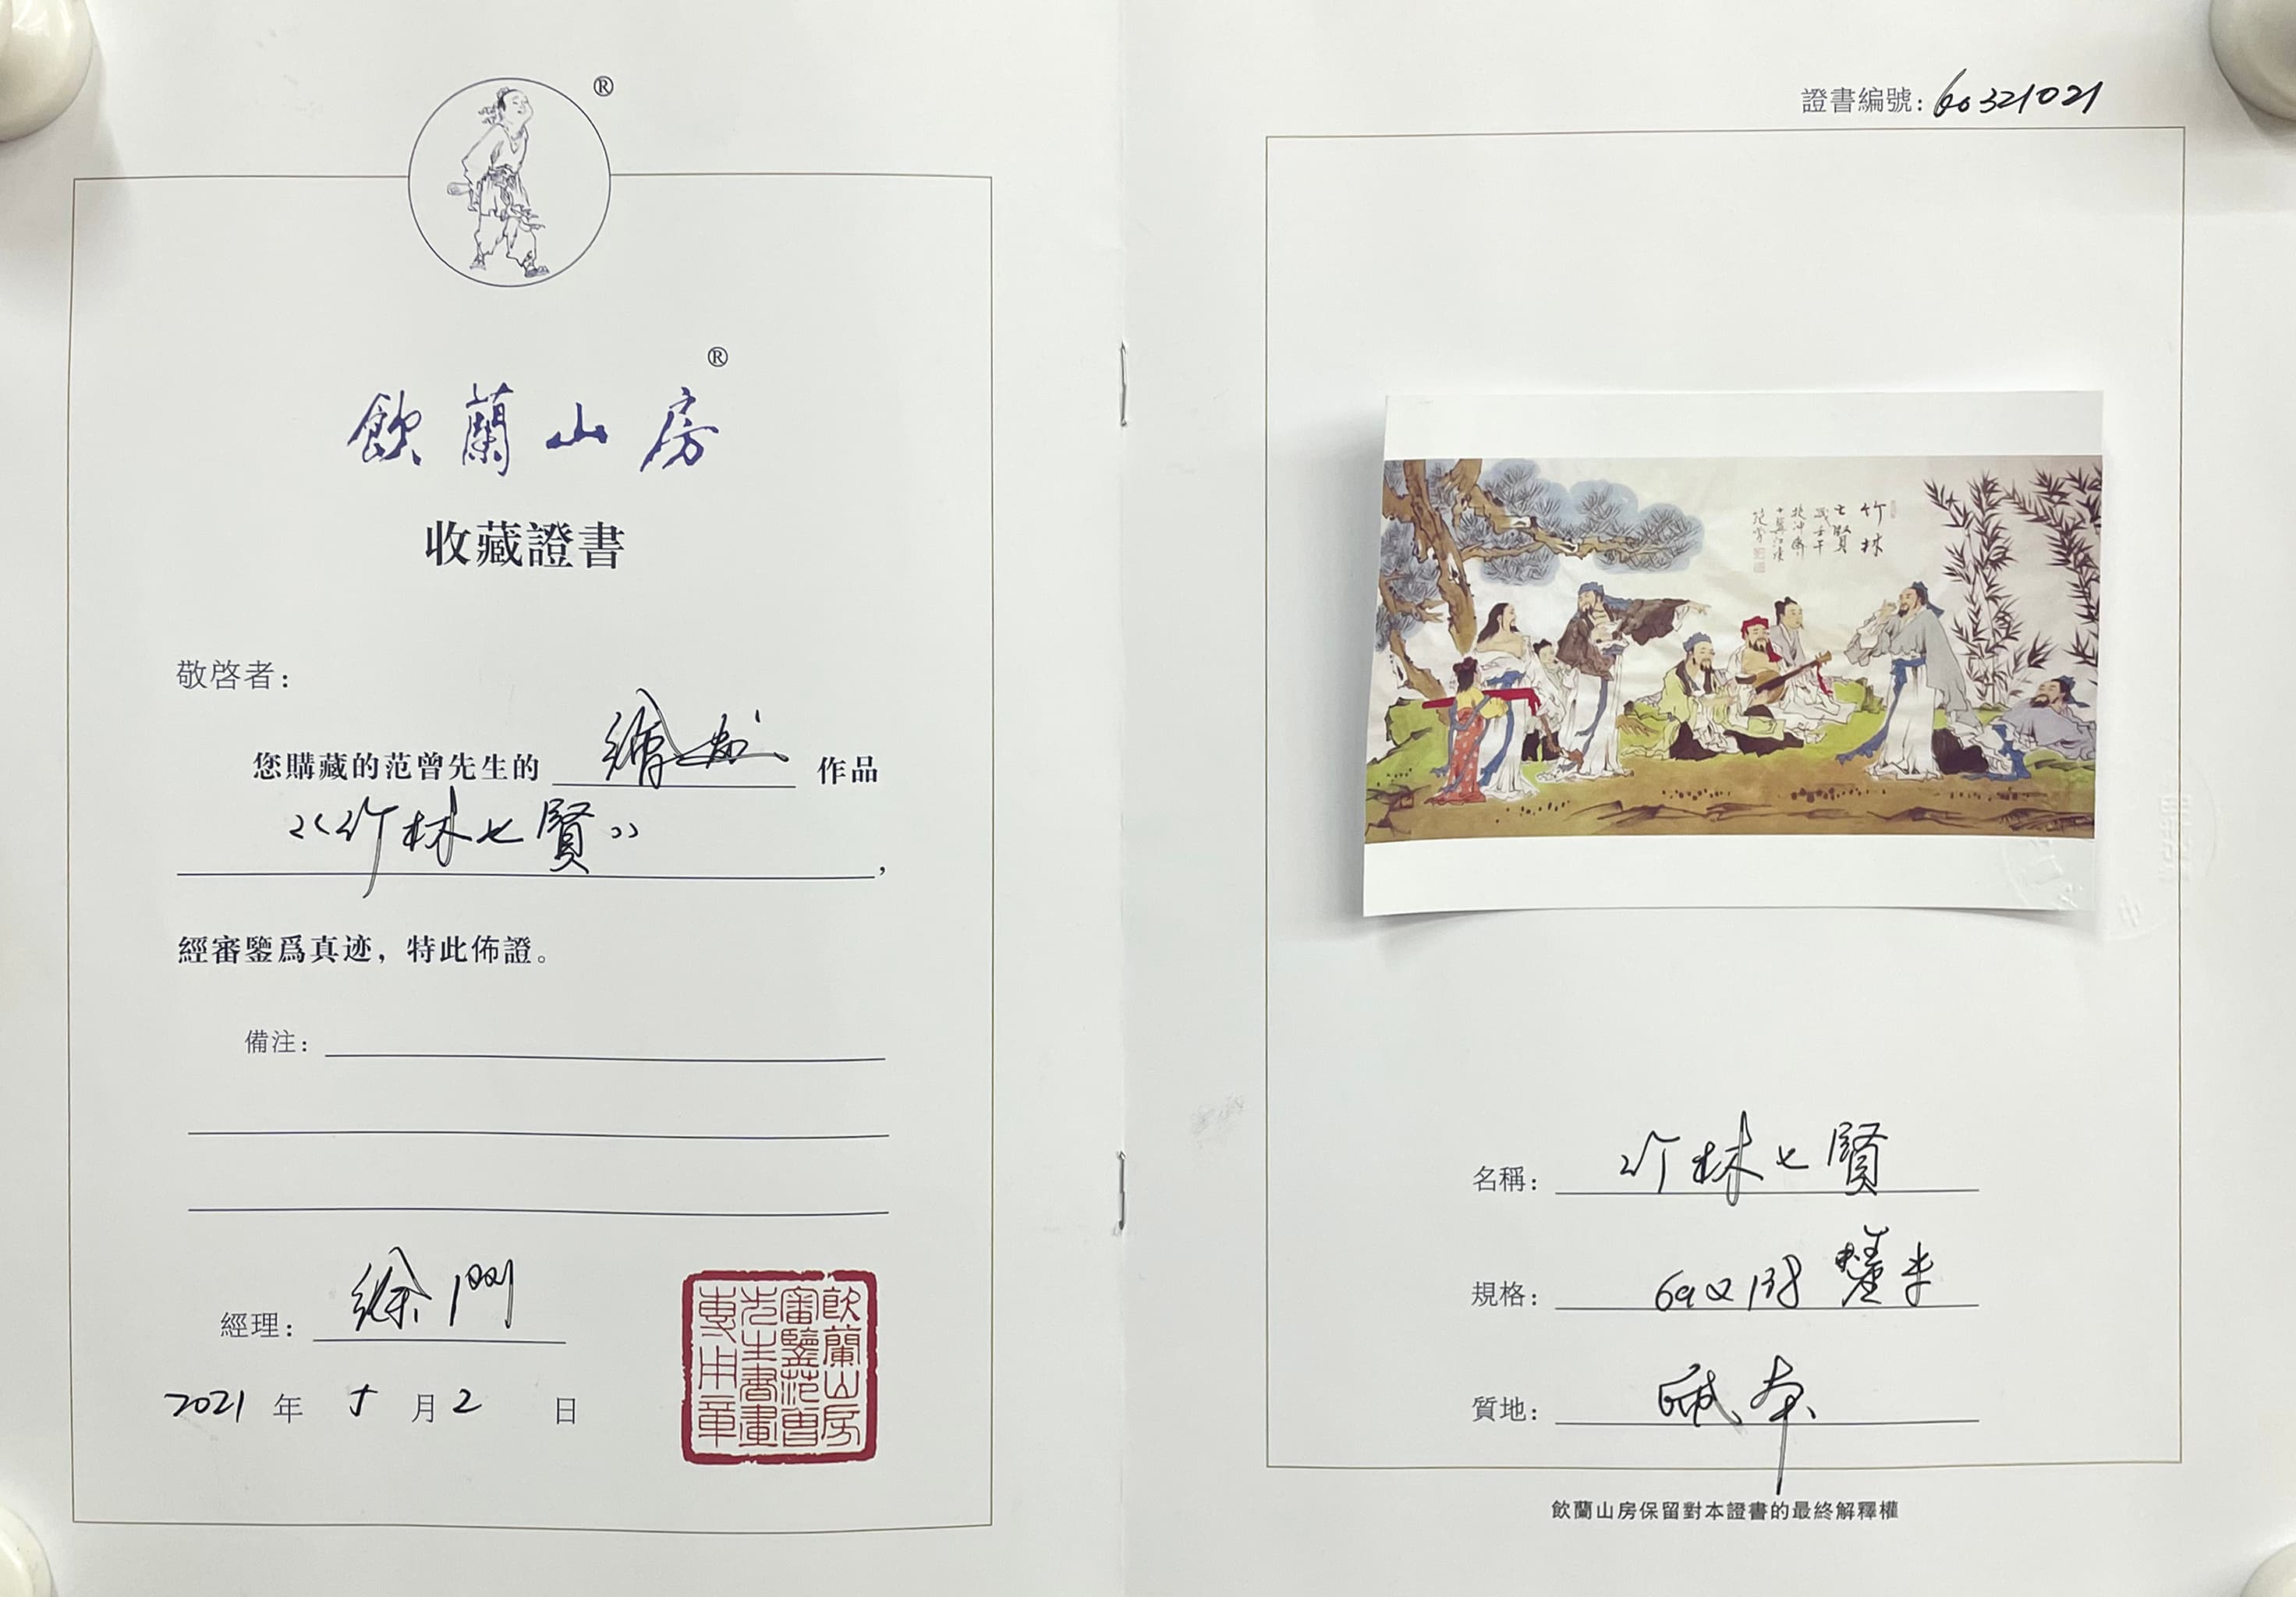 ®
®
飲蘭山房
收藏證書
敬啓者：
您購藏的范曾先生的 繪畫 作品
《竹林七賢》，
經審鑒爲真迹，特此佈證。
備注：
經理：徐
2021 年 5 月 2 日
飲蘭山房
審鑒范曾
先生書畫
專用章
證書編號：60321021
竹林
七賢
歲壬午
十翼江東
范曾
名稱：竹林七賢
規格：69×138 釐米
質地：紙本
飲蘭山房保留對本證書的最終解釋權